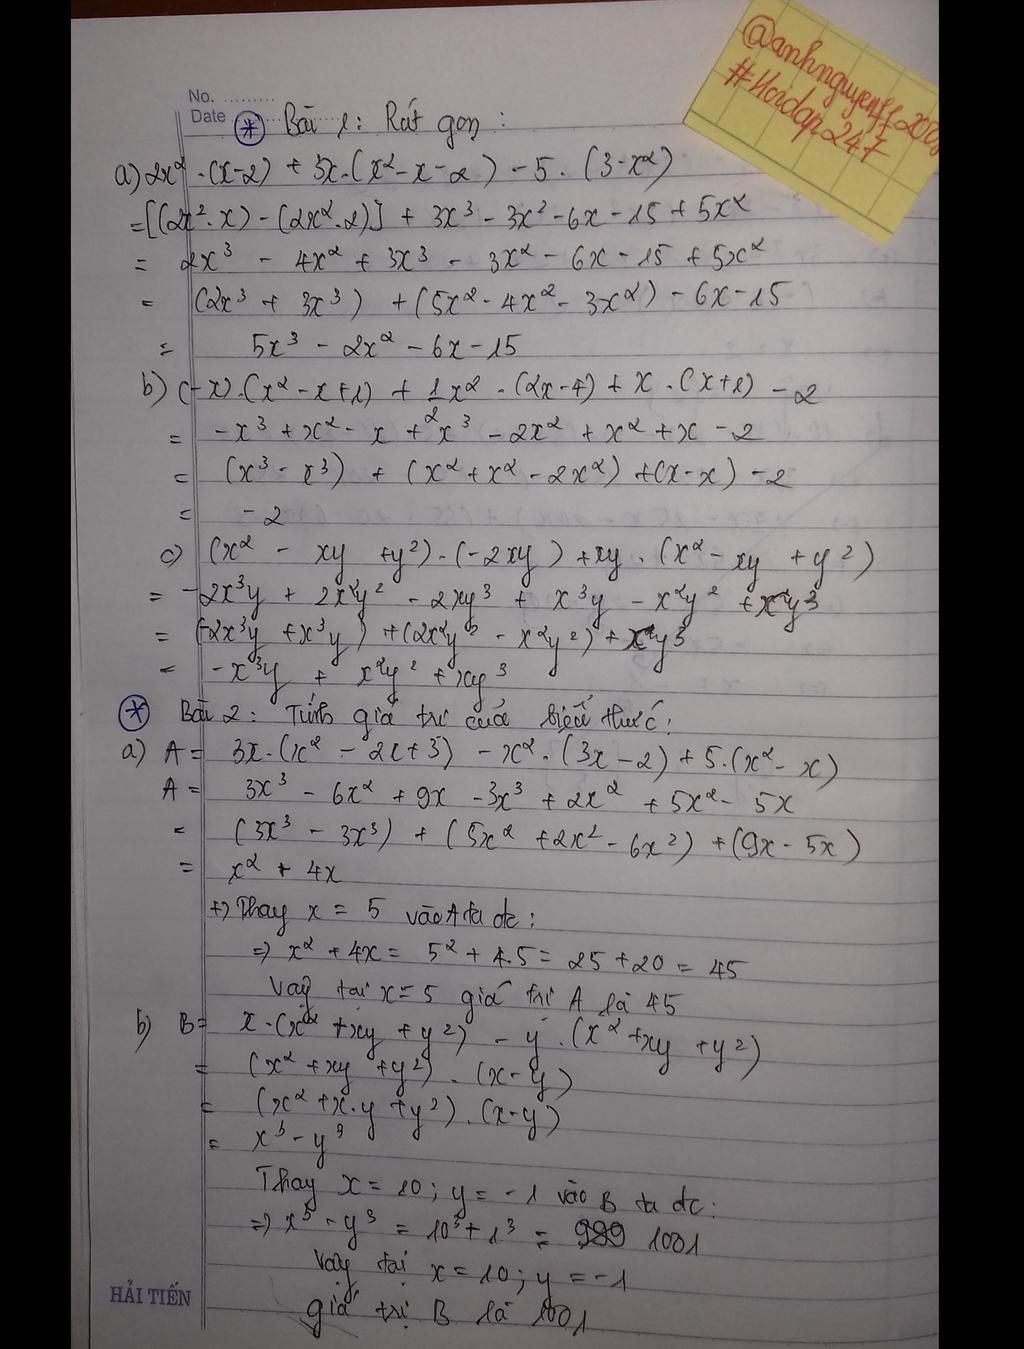 @anhnguyenff2008
#Hoidap247
No. ..........
Date ..........
* Bài 1: Rút gọn:
a) 2x² . (x-2) + 3x.(x² - x - 2) - 5 . (3-x²)
= [(2x². x) - (2x². 2)] + 3x³ - 3x² - 6x - 15 + 5x²
= 2x³ - 4x² + 3x³ - 3x² - 6x - 15 + 5x²
= (2x³ + 3x³) + (5x² - 4x² - 3x²) - 6x - 15
= 5x³ - 2x² - 6x - 15
b) (-x).(x² - x + 1) + 1/2 x² . (2x-4) + x . (x+1) - 2
= -x³ + x² - x + x³ - 2x² + x² + x - 2
= (x³ - x³) + (x² + x² - 2x²) + (x - x) - 2
= -2
c) (x² - xy + y²) . (-2xy) + xy . (x² - xy + y²)
= -2x³y + 2x²y² - 2xy³ + x³y - x²y² + xy³
= (-2x³y + x³y) + (2x²y² - x²y²) + xy³
= -x³y + x²y² + xy³
* Bài 2: Tính giá trị của biểu thức:
a) A = 3x.(x² - 2x + 3) - x² . (3x - 2) + 5.(x² - x)
A = 3x³ - 6x² + 9x - 3x³ + 2x² + 5x² - 5x
= (3x³ - 3x³) + (5x² + 2x² - 6x²) + (9x - 5x)
= x² + 4x
+) Thay x = 5 vào A ta đc:
=> x² + 4x = 5² + 4.5 = 25 + 20 = 45
Vậy tại x = 5 giá trị A là 45
b) B = x.(x² + xy + y²) - y . (x² + xy + y²)
= (x² + xy + y²) . (x - y)
= (x² + x.y + y²) . (x - y)
= x³ - y³
Thay x = 10; y = -1 vào B ta đc:
=> x³ - y³ = 10³ + 1³ = 1001
Vậy tại x = 10; y = -1
giá trị B là 1001
HẢI TIẾN